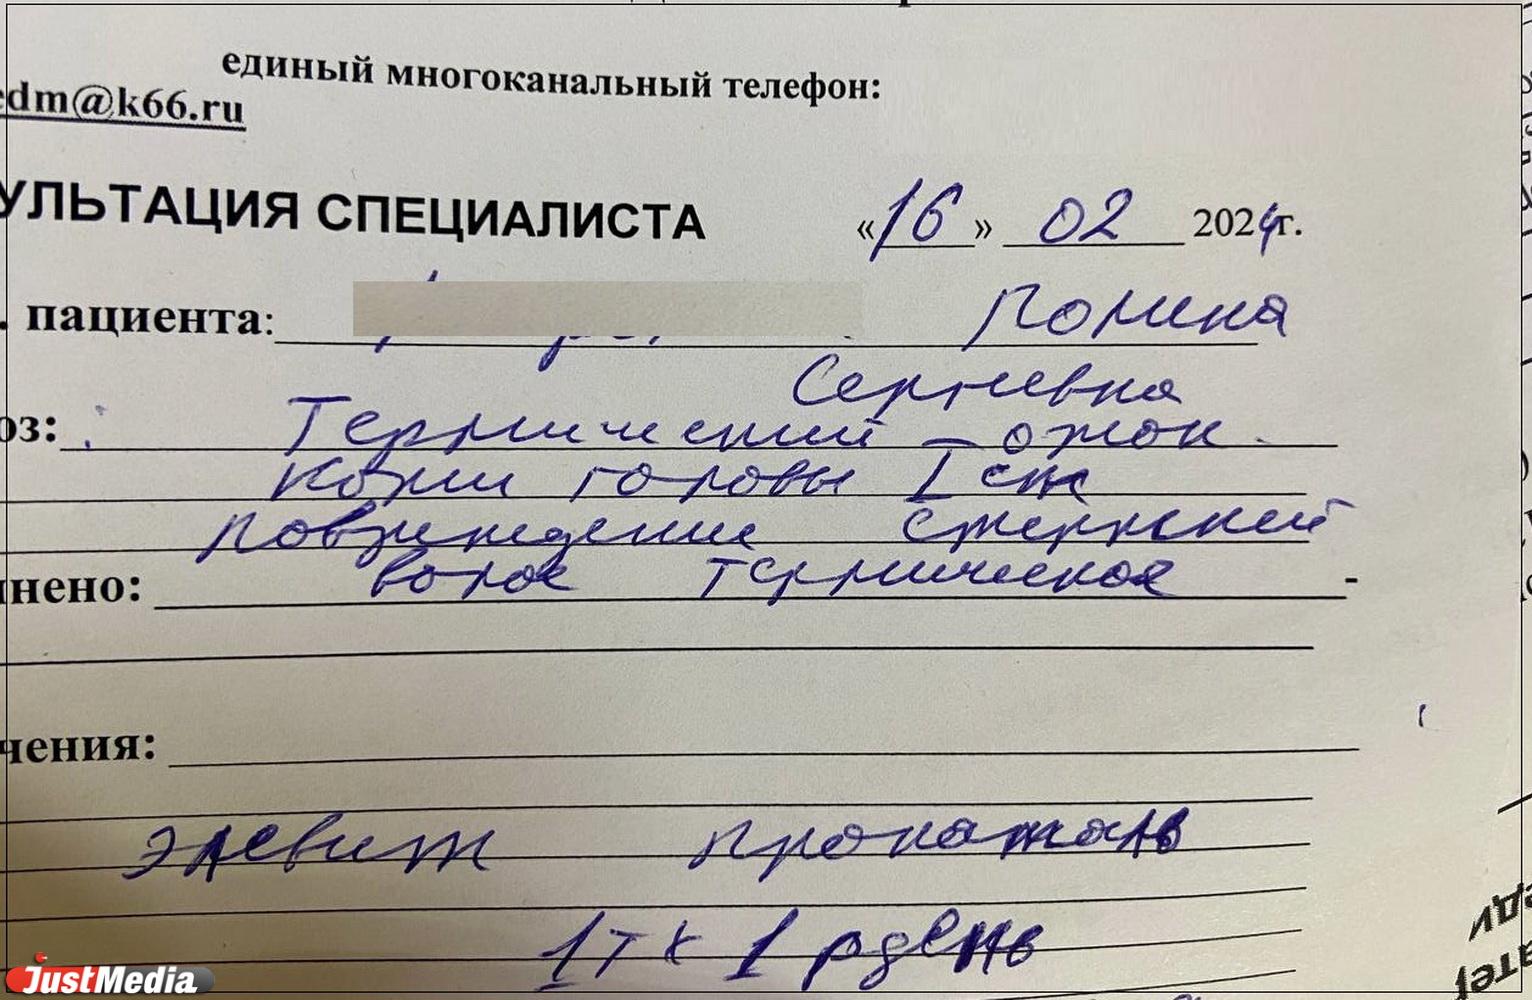 единый многоканальный телефон:
edm@k66.ru
УЛЬТАЦИЯ СПЕЦИАЛИСТА «16» 02 2024г.
. пациента: Полина
Сергеевна
оз: Термический ожог
кожи головы I ст
повреждение стержней
нено: волос термическое
чения:
элевит пронаталь
1т х 1 р день
JustMedia